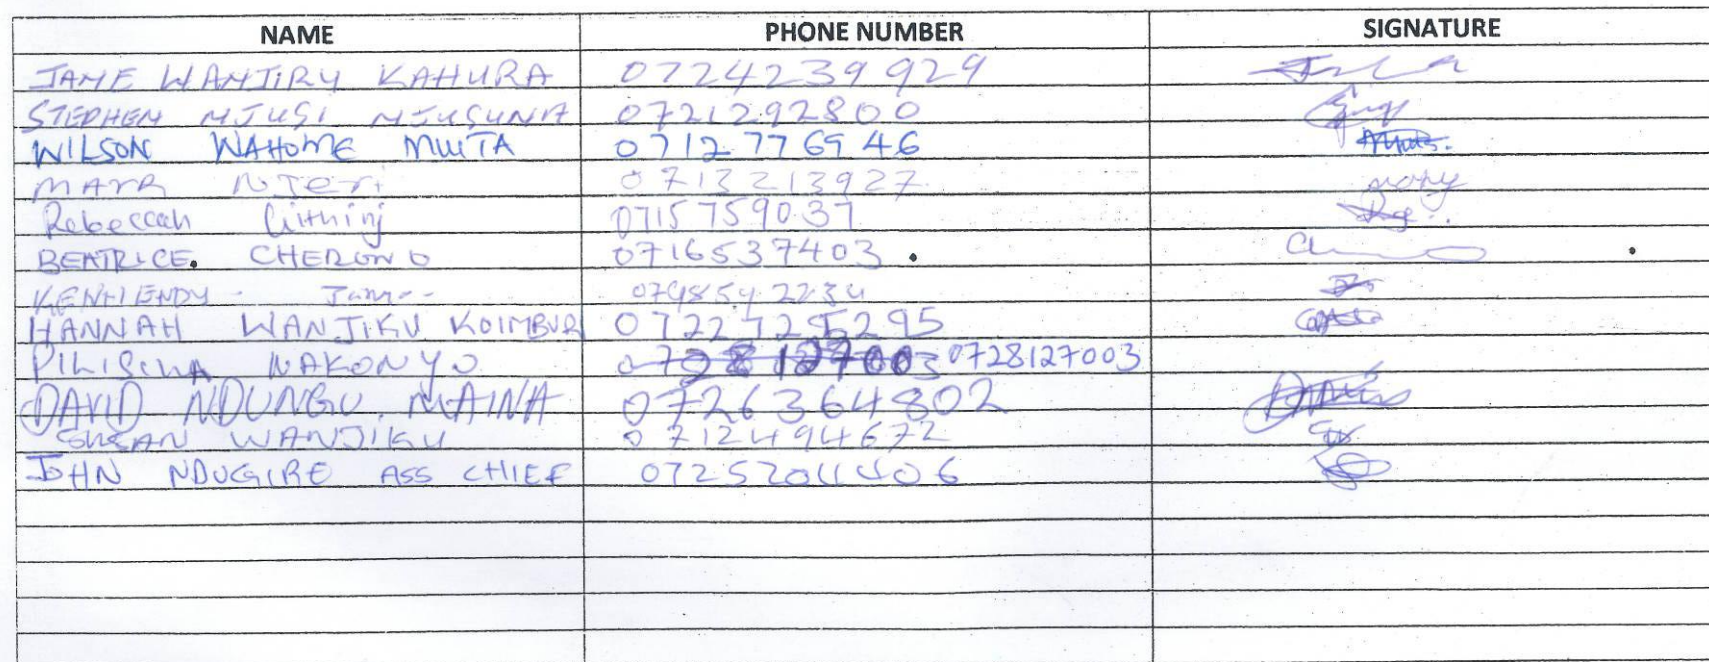 NAME PHONE NUMBER SIGNATURE
JANE WANJIRU KAHURA 0724239929
STEPHEN NJUSI 0721292800
WILSON WAHOME MWITA 0712776946
MARR NJERI 0713213927 mary
Rebeccah Githinj 0715759037
BEATRICE CHERONO 0716537403
HANNAH WANJIKU KOIMBUR
WAKONYO 0728127003 0728127003
DAVID NDUNGU MAINA 0726364802
SUSAN WANJIKU 0712494672
JOHN NDUGIRE ASS CHIEF 0725204406